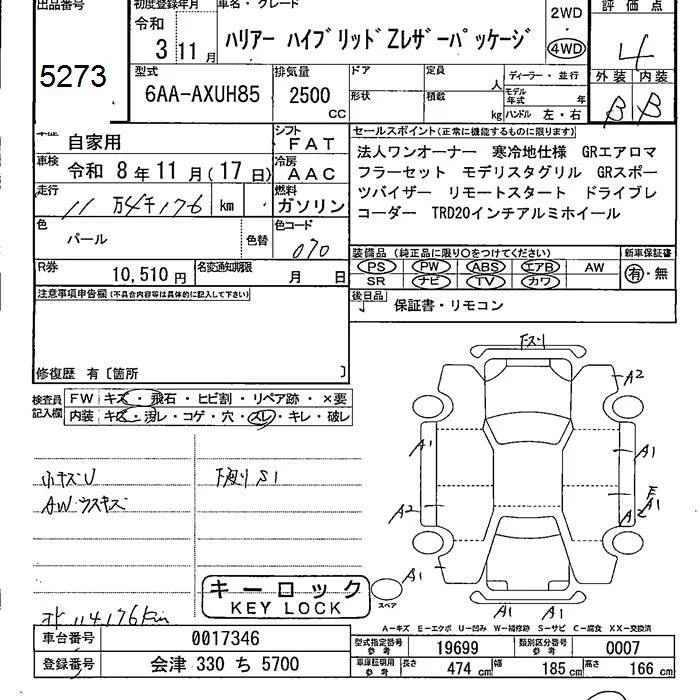 出品番号 初度登録年月 車名・グレード 評価点
5273
令和 3年11月
ハリアー ハイブリッドZレザーパッケージ
2WD
4WD
4
型式 排気量 ドア 定員 ディーラー・並行 外装 内装
6AA-AXUH85 2500 CC
形状 積載 人 kg モデル年式 年 ハンドル 左・右
B B
自家用 シフト FAT
車検 令和 8年11月(17日) 冷房 AAC
走行 11万4千176 km 燃料 ガソリン
色 パール 色替 色コード 070
R券 10,510円 名変通知期限 月 日
セールスポイント(正常に機能するものに限ります)
法人ワンオーナー 寒冷地仕様 GRエアロマ
フラーセット モデリスタグリル GRスポー
ツバイザー リモートスタート ドライブレ
コーダー TRD20インチアルミホイール
装備品(純正品に限り○をつけてください) 新車保証書
PS PW ABS エアB AW 有・無
SR ナビ TV カワ
後日品 保証書・リモコン
注意事項申告欄(不具合内容等は具体的に記入して下さい)
修復歴 有〔箇所 〕
検査員記入欄 FW キズ・飛石・ヒビ割・リペア跡・×要
内装 キズ・汚レ・コゲ・穴・スレ・キレ・破レ
小キズU
AWウスキズ
下廻りS1
下スリ
A2
A1 A1
A2
A1
A2
A1
A1 A1
スペア
キーロック
KEY LOCK
114176km
A-キズ E-エクボ U-凹み W-補修跡 S-サビ C-腐食 XX-交換済
車台番号 0017346
登録番号 会津 330 ち 5700
型式指定番号 参考 19699 類別区分番号 参考 0007
車庫証明用 参考 長さ 474 cm 幅 185 cm 高さ 166 cm